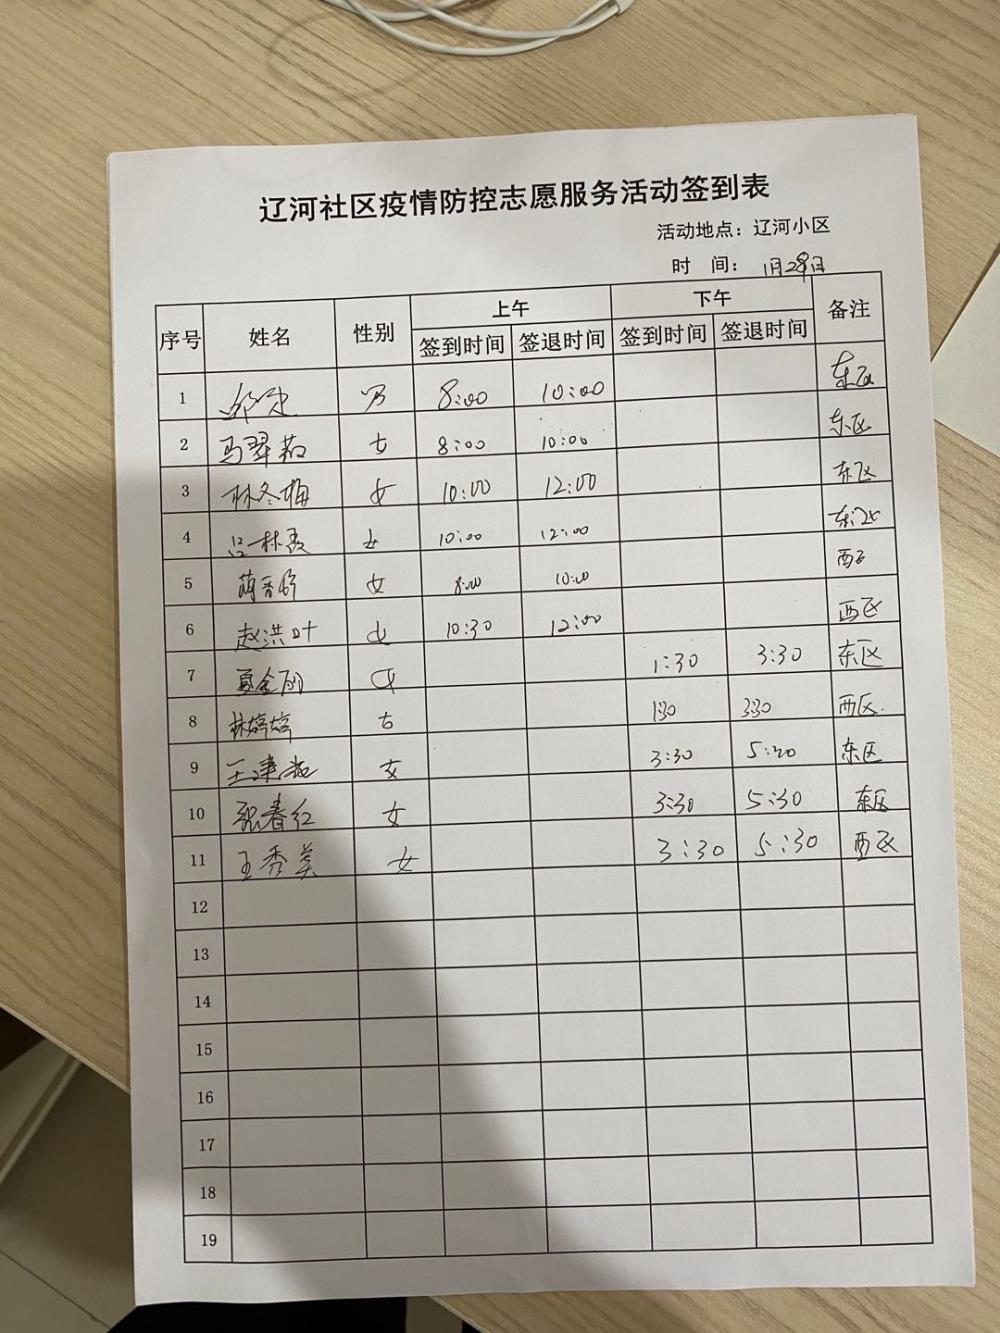 辽河社区疫情防控志愿服务活动签到表
活动地点：辽河小区
时 间：1月28日
序号 姓名 性别 上午 下午 备注
签到时间 签退时间 签到时间 签退时间
1 男 8:00 10:00 东区
2 马翠茹 女 8:00 10:00 东区
3 林冬梅 女 10:00 12:00 东区
4 吕林霞 女 10:00 12:00 东区
5 女 8:00 10:00 西区
6 赵洪叶 女 10:30 12:00 西区
7 夏金丽 女 1:30 3:30 东区
8 林婷婷 女 1:30 3:30 西区
9 王 女 3:30 东区
10 张春红 女 3:30 5:30 东区
11 王秀英 女 3:30 5:30 西区
12
13
14
15
16
17
18
19